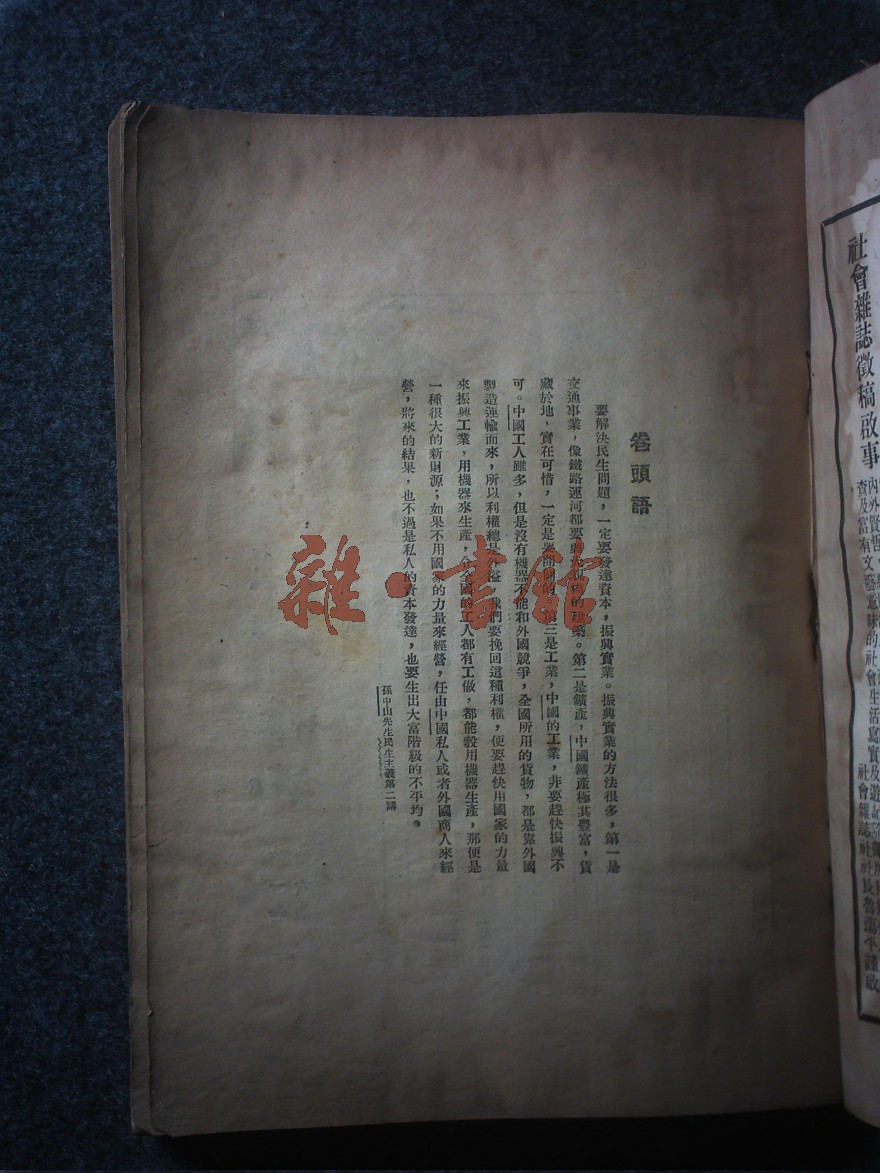 社會雜誌徵稿啟事
社會雜誌社社長
卷頭語
要解決民生問題，一定要發達資本，振興實業。振興實業的方法很多，第一是
交通事業，像鐵路運河都要興大規模的建築。第二是鑛產，中國鑛產極其豐富，貨
藏於地，實在可惜，一定是要開闢的。第三是工業，中國的工業，非要趕快振興不
可。中國工人雖多，但是沒有機器不能和外國競爭，全國所用的貨物，都是靠外國
製造運輸而來，所以利權總是外溢。我們要挽回這種利權，便要趕快用國家的力量
來振興工業，用機器來生產，令全國的工人都有工做，都能彀用機器生產，那便是
一種很大的新財源；如果不用國家的力量來經營，任由中國私人或者外國商人來經
營，將來的結果，也不過是私人的資本發達，也要生出大富階級的不平均。
孫中山先生民生主義第二講
雜·書館